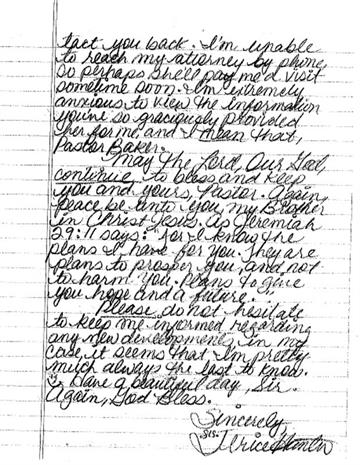 tact you back. I'm unable
to reach my attorney by phone,
so perhaps she'll pay me a visit
sometime soon. I'm extremely
anxious to view the information
you're so graciously provided
her for me, and I mean that,
Pastor Baker.
May the Lord, Our God,
continue to bless and keep
you and yours, Pastor. Again,
peace be unto you, my Brother
in Christ Jesus. As Jeremiah
29:11 says: "For I know the
plans I have for you. They are
plans to prosper you, and not
to harm you. Plans to give
you hope and a future."
Please, do not hesitate
to keep me informed regarding
any new developments in my
case, it seems that I'm pretty
much always the last to know.
Have a beautiful day, Sir.
Again, God Bless.
Sincerely,
Sis.